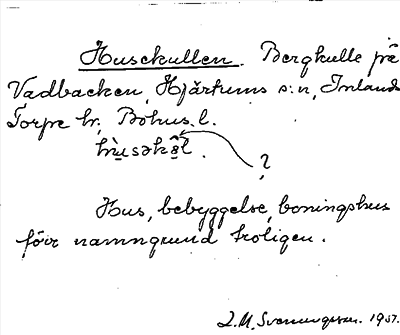 Husekullen. Bergkulle på
Vadbacken, Hjärtums s:n, Inlands
Torpe hr, Bohus. l.
?
Hus, bebyggelse, boningshus
förr namngrund troligen.
1937.